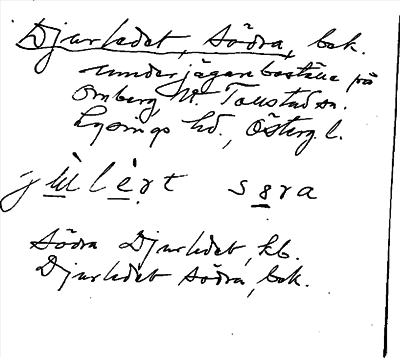 Djurledet, Södra, bek.
underjägareboställe på
Omberg V. Tollstad sn.
Lysings hd., Österg. l.
jɯ̀lèṛt sɵra
Södra Djurledet, kb.
Djurledet Södra, bek.